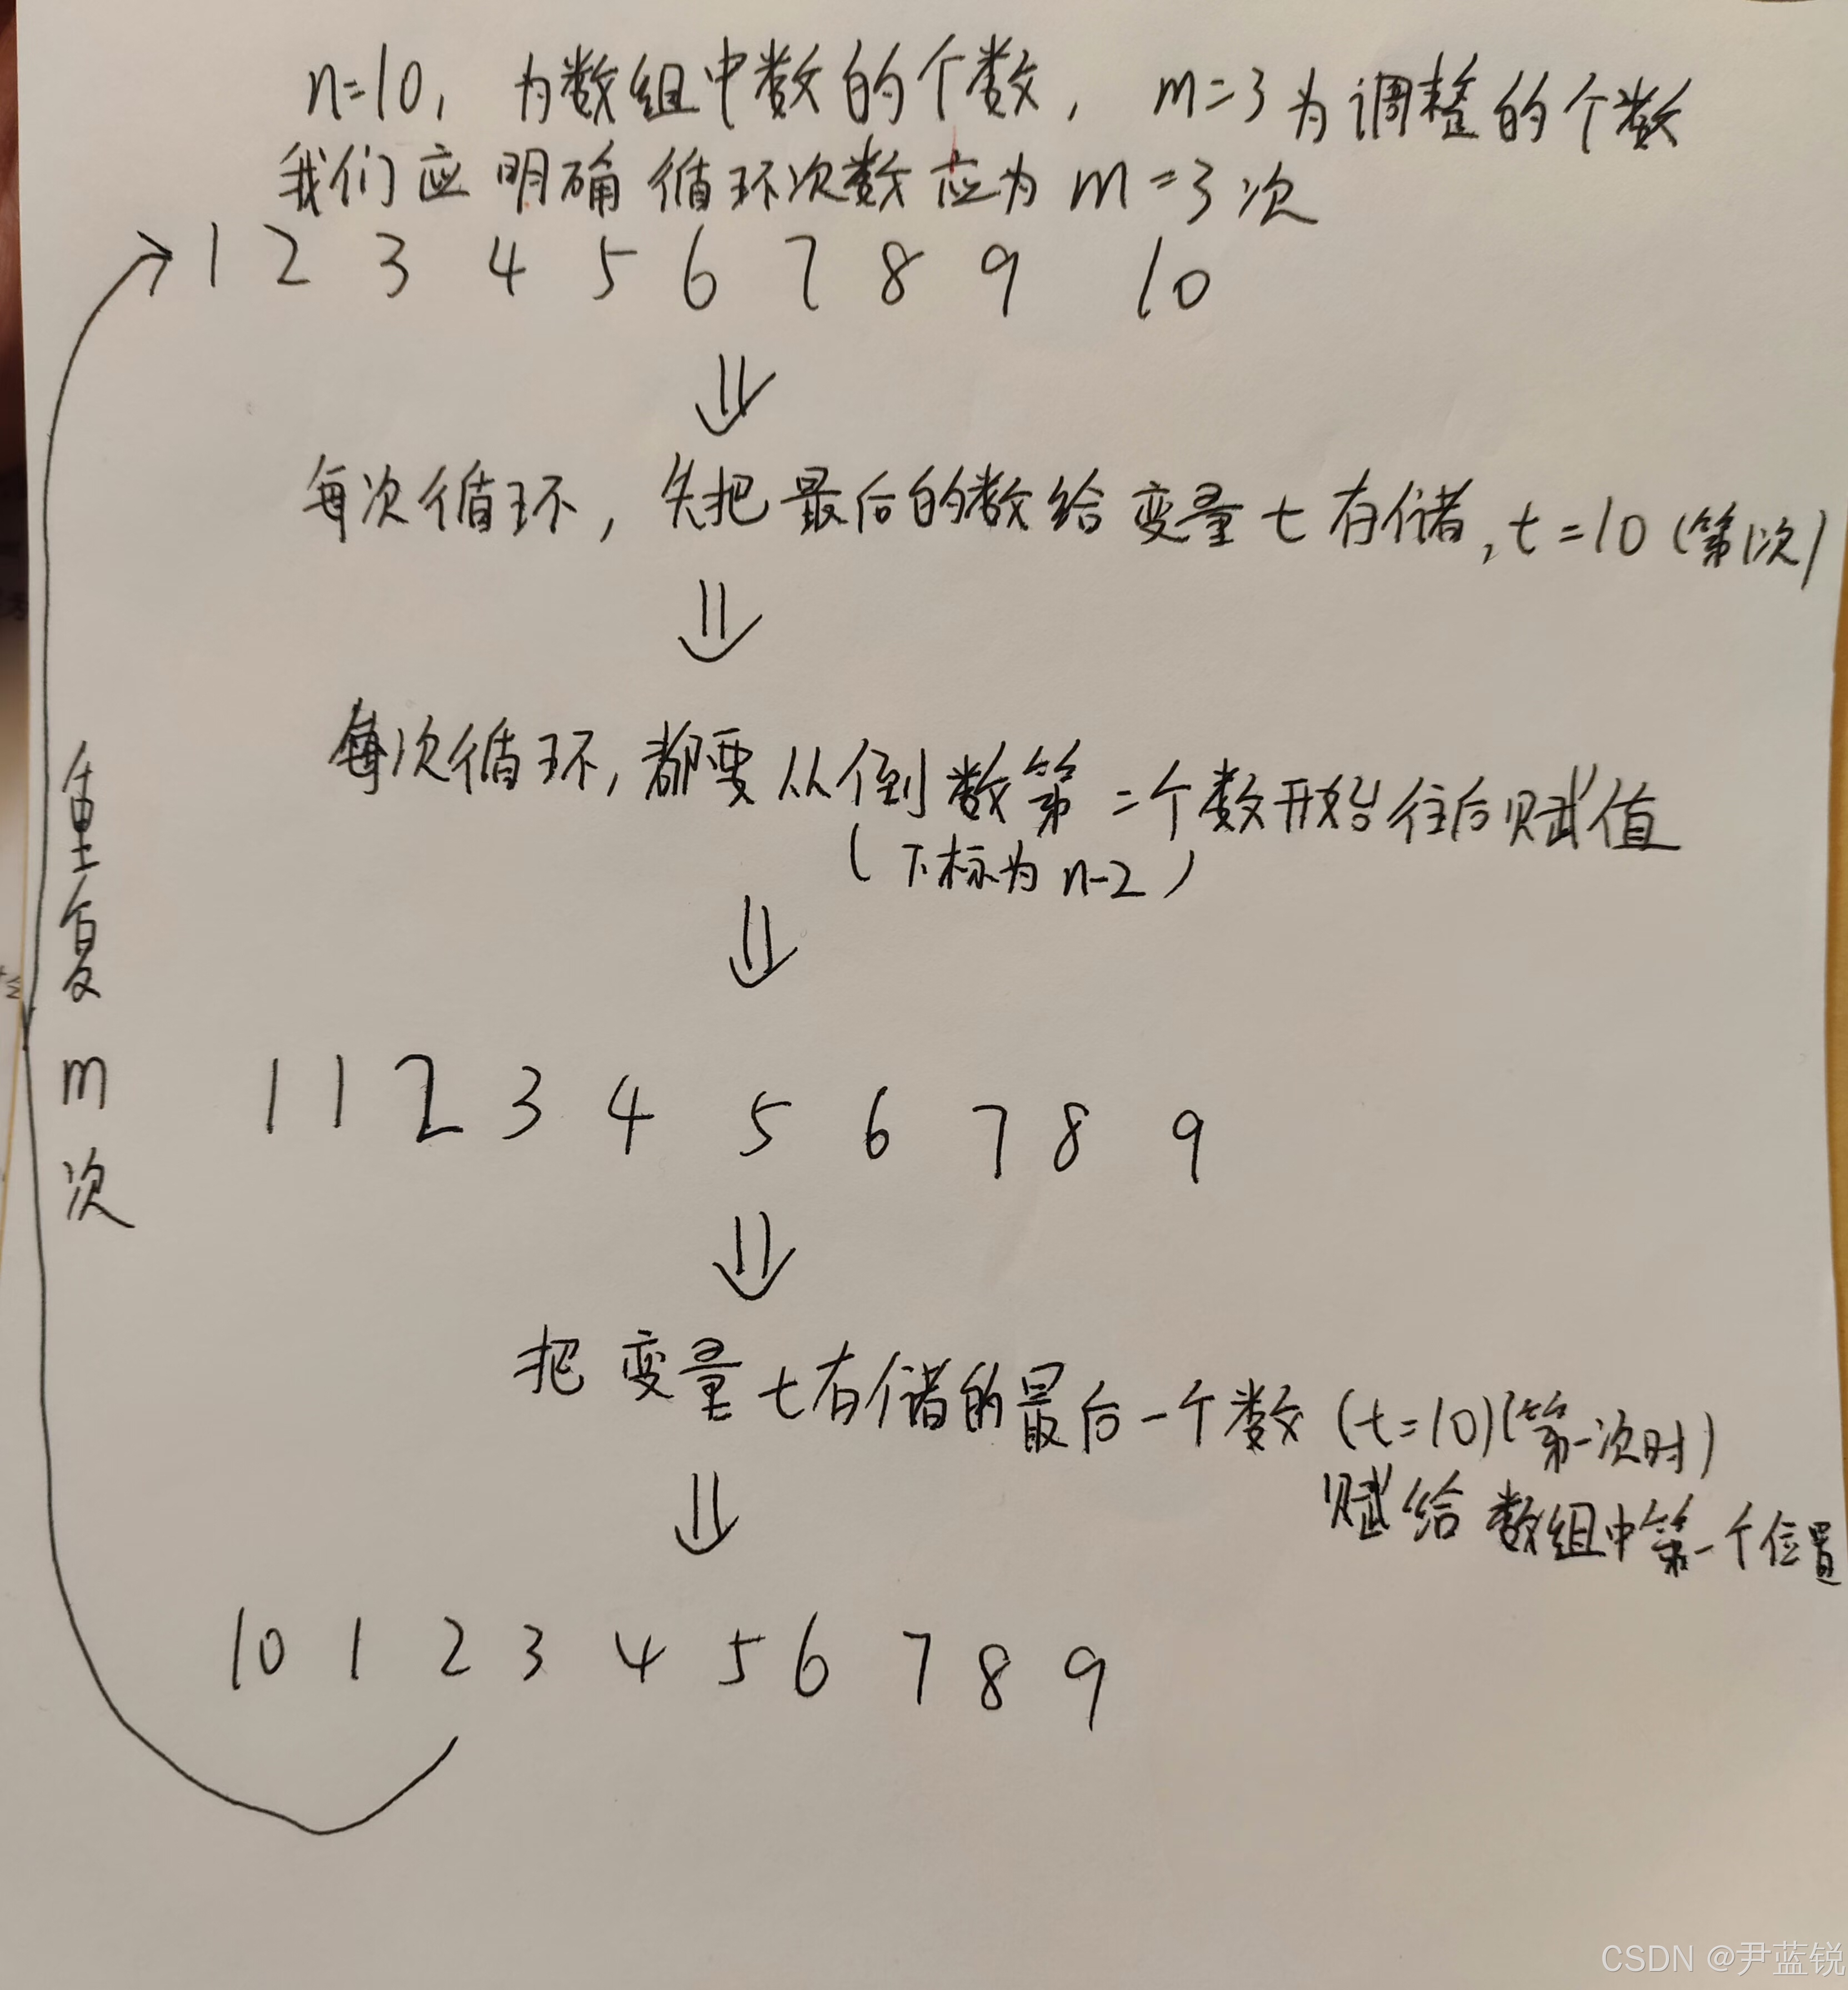 n=10, 为数组中数的个数, m=3为调整的个数
我们应明确循环次数应为m=3次
1 2 3 4 5 6 7 8 9 10
每次循环, 先把最后的数给变量t存储, t=10 (第1次)
每次循环, 都要从倒数第二个数开始往后赋值
(下标为n-2)
1 1 2 3 4 5 6 7 8 9
把变量t存储的最后一个数 (t=10)(第一次时)
赋给数组中第一个位置
10 1 2 3 4 5 6 7 8 9
重复m次
CSDN @尹蓝锐